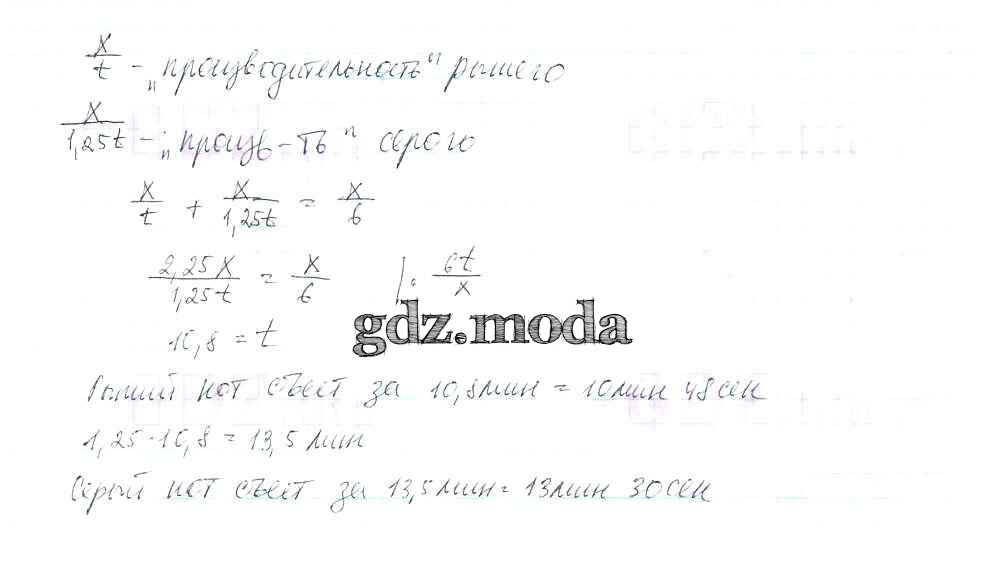 x/t - „производительность" рыжего
x/1,25t - „произв-ть" серого
x/t + x/1,25t = x/6
2,25x/1,25t = x/6 |· 6t/x
gdz.moda
10,8 = t
Рыжий кот съест за 10,8 мин = 10 мин 48 сек
1,25·10,8 = 13,5 мин
Серый кот съест за 13,5 мин = 13 мин 30 сек